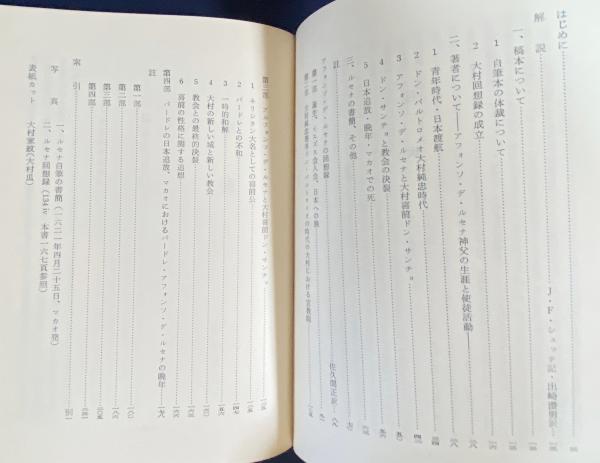 はじめに
解説 J・F・シュッテ記・出崎澄男訳
一、稿本について
1 自筆本の体裁について
2 大村回想録の成立
二、著者について―アフォンソ・デ・ルセナ神父の生涯と使徒活動―
1 青年時代・日本渡航
2 ドン・バルトロメオ大村純忠時代
3 アフォンソ・デ・ルセナと大村喜前ドン・サンチョ
4 ドン・サンチョと教会の決裂
5 日本追放・晩年・マカオでの死
三、ルセナの書簡、その他
註
アフォンソ・デ・ルセナの回想録 佐久間正訳
第一部 論究、イエズス会入会、日本への旅
第三部 アフォンソ・デ・ルセナと大村喜前ドン・サンチョ
1 キリシタン大名としての喜前公
2 パードレとの不和
3 一時的和解
4 大村の新しい城と新しい教会
5 教会との最終的決裂
6 喜前の性格に関する追想
第四部 パードレの日本追放、マカオにおけるパードレ・アフォンソ・デ・ルセナの晩年
註
第一部
第二部
第三部
第四部
索引
写真 一、ルセナ自筆の書簡（一六二一年四月二十五日、マカオ発）
二、ルセナ回想録（134 iv 本書一六七頁参照）
表紙カット 大村家紋（大村瓜）